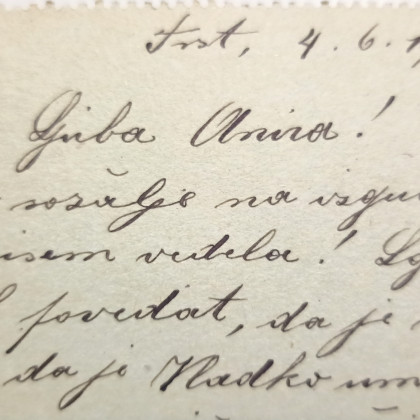 Trst, 4. 6. 1
Ljuba Anica!
sožalje na izgu
isem vedela!
povedat, da je
da je Vladko um